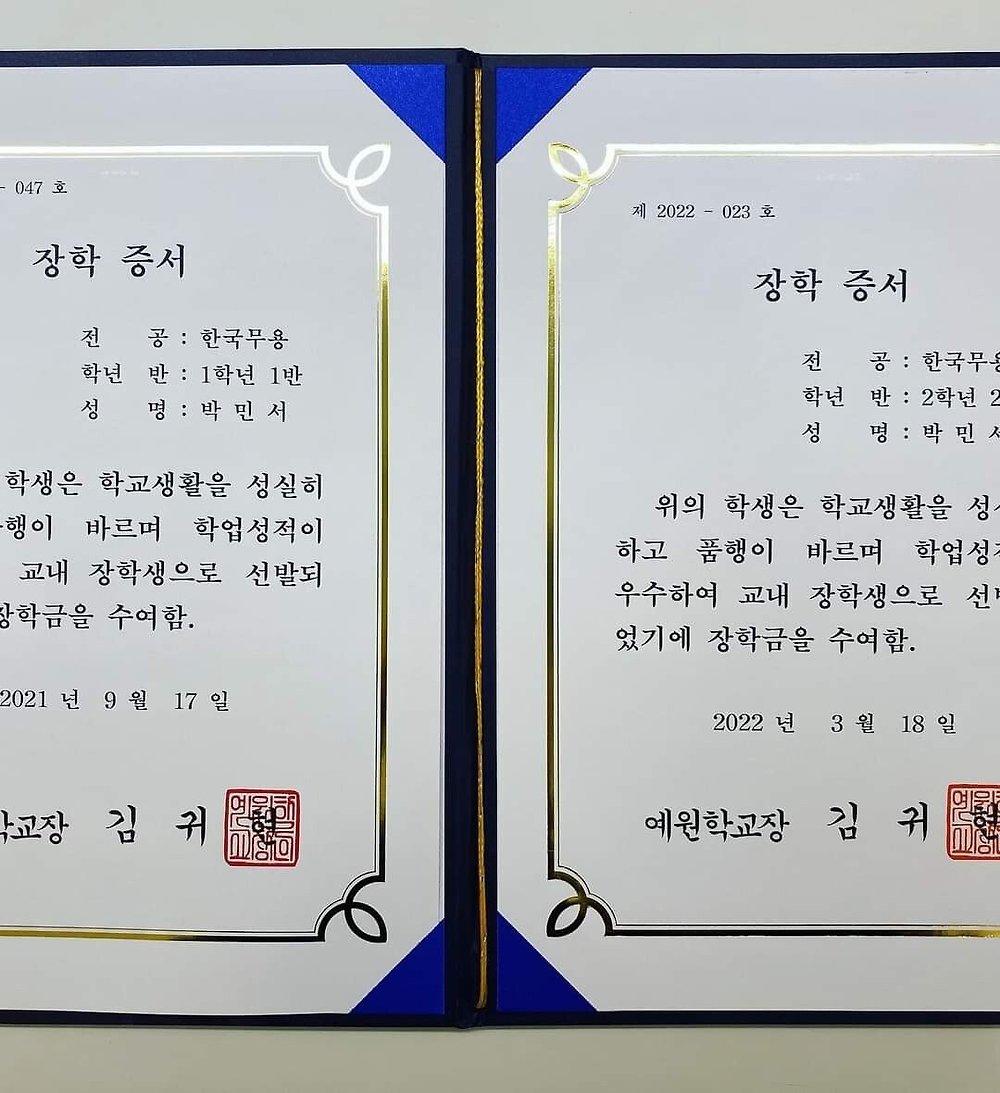 - 047 호
장학 증서
전 공 : 한국무용
학년 반 : 1학년 1반
성 명 : 박 민 서
학생은 학교생활을 성실히
행이 바르며 학업성적이
교내 장학생으로 선발되
장학금을 수여함.
2021 년 9 월 17 일
학교장 김 귀 현
제 2022 - 023 호
장학 증서
전 공 : 한국무용
학년 반 : 2학년 2
성 명 : 박 민 서
위의 학생은 학교생활을 성실
하고 품행이 바르며 학업성적
우수하여 교내 장학생으로 선발
었기에 장학금을 수여함.
2022 년 3 월 18 일
예원학교장 김 귀 현